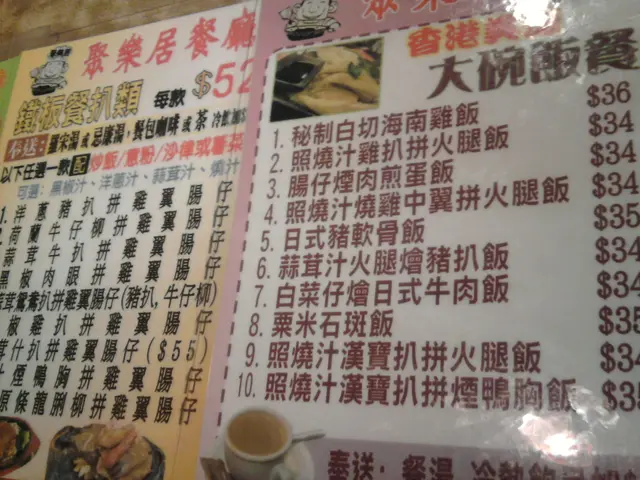 聚樂居餐廳
鐵板餐扒類 每款 $52
羅宋湯 或 忌廉湯，餐包 咖啡 或 茶
以下任選一款 配 炒飯/意粉/沙律或薯菜
可選：黑椒汁、洋蔥汁、蒜茸汁、燒汁
1. 洋蔥豬扒拼雞翼腸仔
荷蘭牛仔柳拼雞翼腸仔
蒜茸牛扒拼雞翼腸仔
黑椒肉眼拼雞翼腸仔
蒜茸鴛鴦扒拼雞翼腸仔(豬扒,牛仔柳)
椒雞扒拼雞翼腸仔
茸什扒拼雞翼腸仔($55)
煙鴨胸拼雞翼腸仔
原條龍脷柳拼雞翼腸仔
聚樂
香港
大碗飯餐
1. 秘制白切海南雞飯 $36
2. 照燒汁雞扒拼火腿飯 $34
3. 腸仔煙肉煎蛋飯 $34
4. 照燒汁燒雞中翼拼火腿飯 $34
5. 日式豬軟骨飯 $35
6. 蒜茸汁火腿燴豬扒飯 $34
7. 白菜仔燴日式牛肉飯 $34
8. 粟米石斑飯 $35
9. 照燒汁漢寶扒拼火腿飯 $34
10. 照燒汁漢寶扒拼煙鴨胸飯 $35
奉送：餐湯